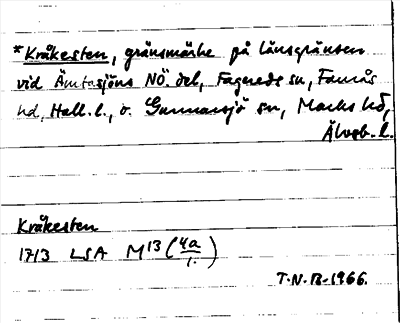 *Kråkesten, gränsmärke på länsgränsen
vid Ämtasjöns NÖ. del, Fagereds sn, Faurås
hd, Hall. l., o. Gunnarsjö sn, Marks hd,
Älvsb. l.
Kråkesten
1713 LSA M13 (4a/1)
T.N.B. 1966.